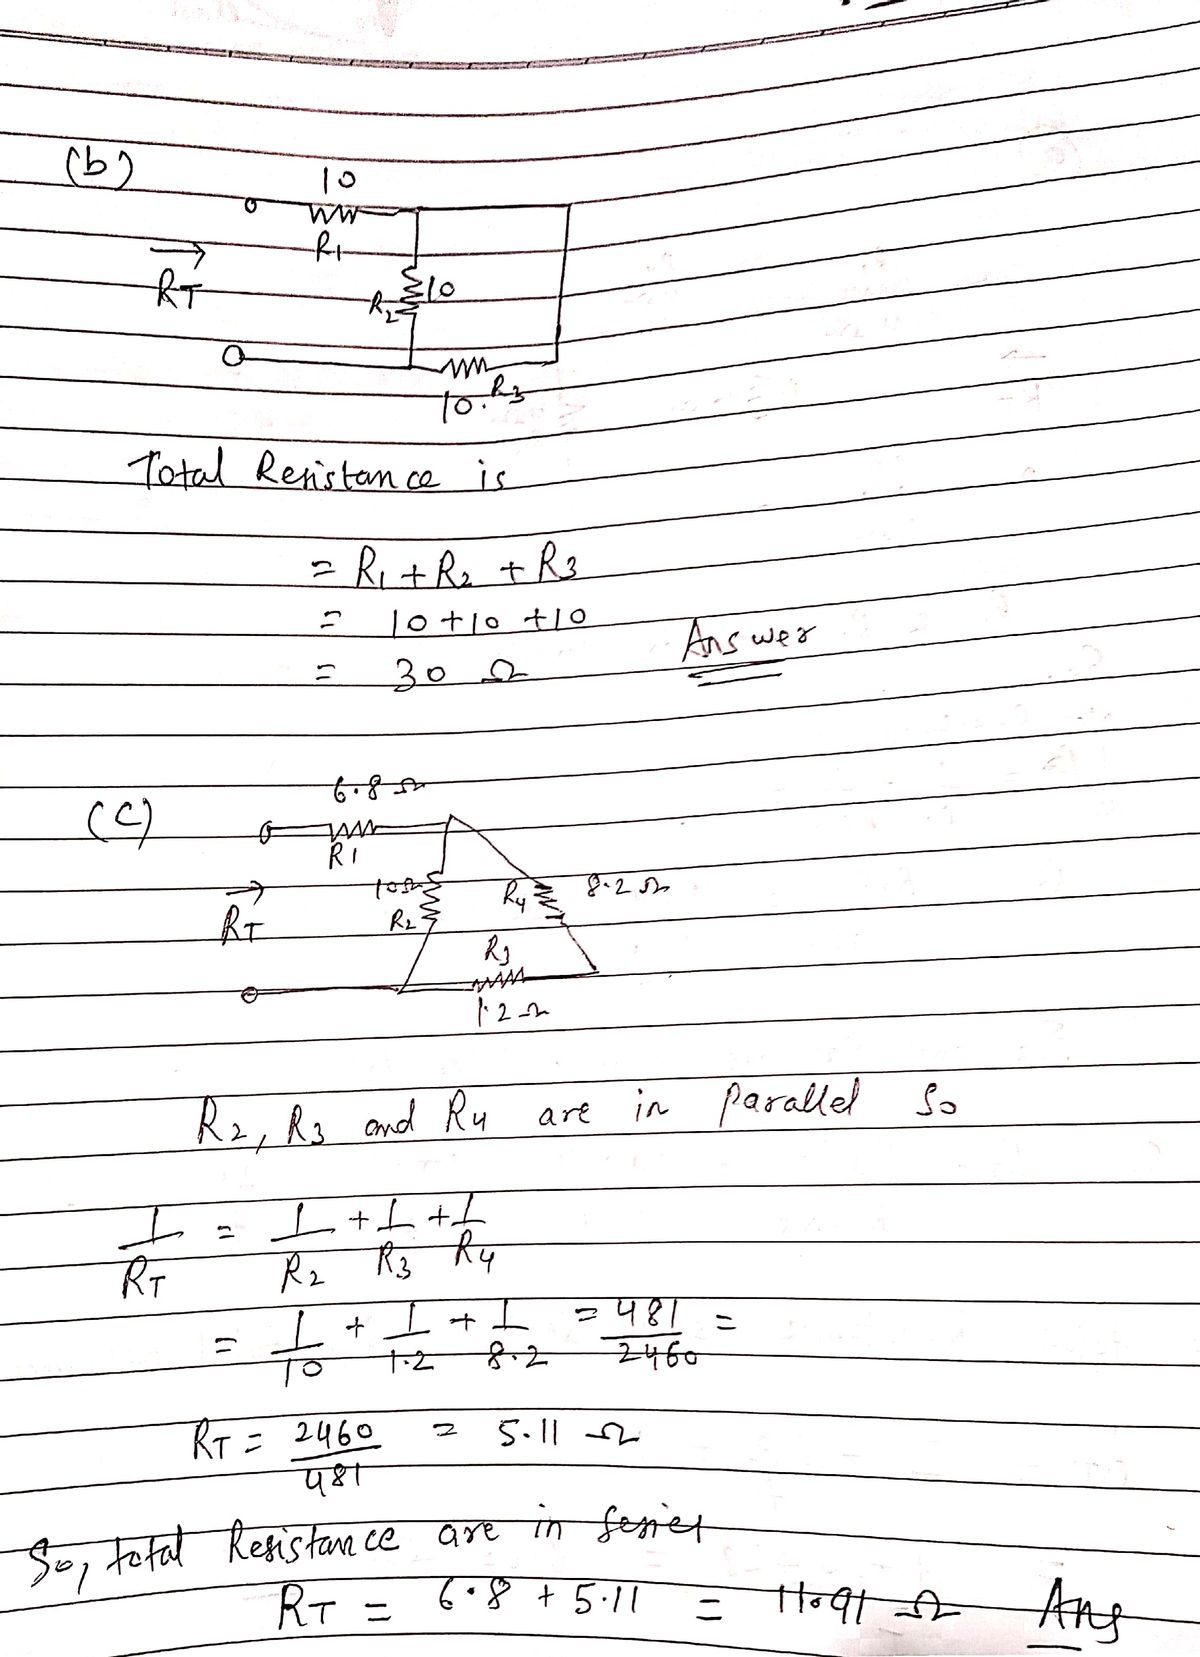 (b)
10
R1
RT
R2 10
10. R3
Total Resistance is
= R1 + R2 + R3
= 10 + 10 + 10
= 30 Ω Answer
(c)
6.8 Ω
R1
10Ω R4 8.2 Ω
RT R2
R3
1.2 Ω
R2, R3 and R4 are in parallel So
1/RT = 1/R2 + 1/R3 + 1/R4
= 1/10 + 1/1.2 + 1/8.2 = 481/2460 =
RT = 2460/481 = 5.11 Ω
So, total Resistance are in series
RT = 6.8 + 5.11 = 11.91 Ω Ans